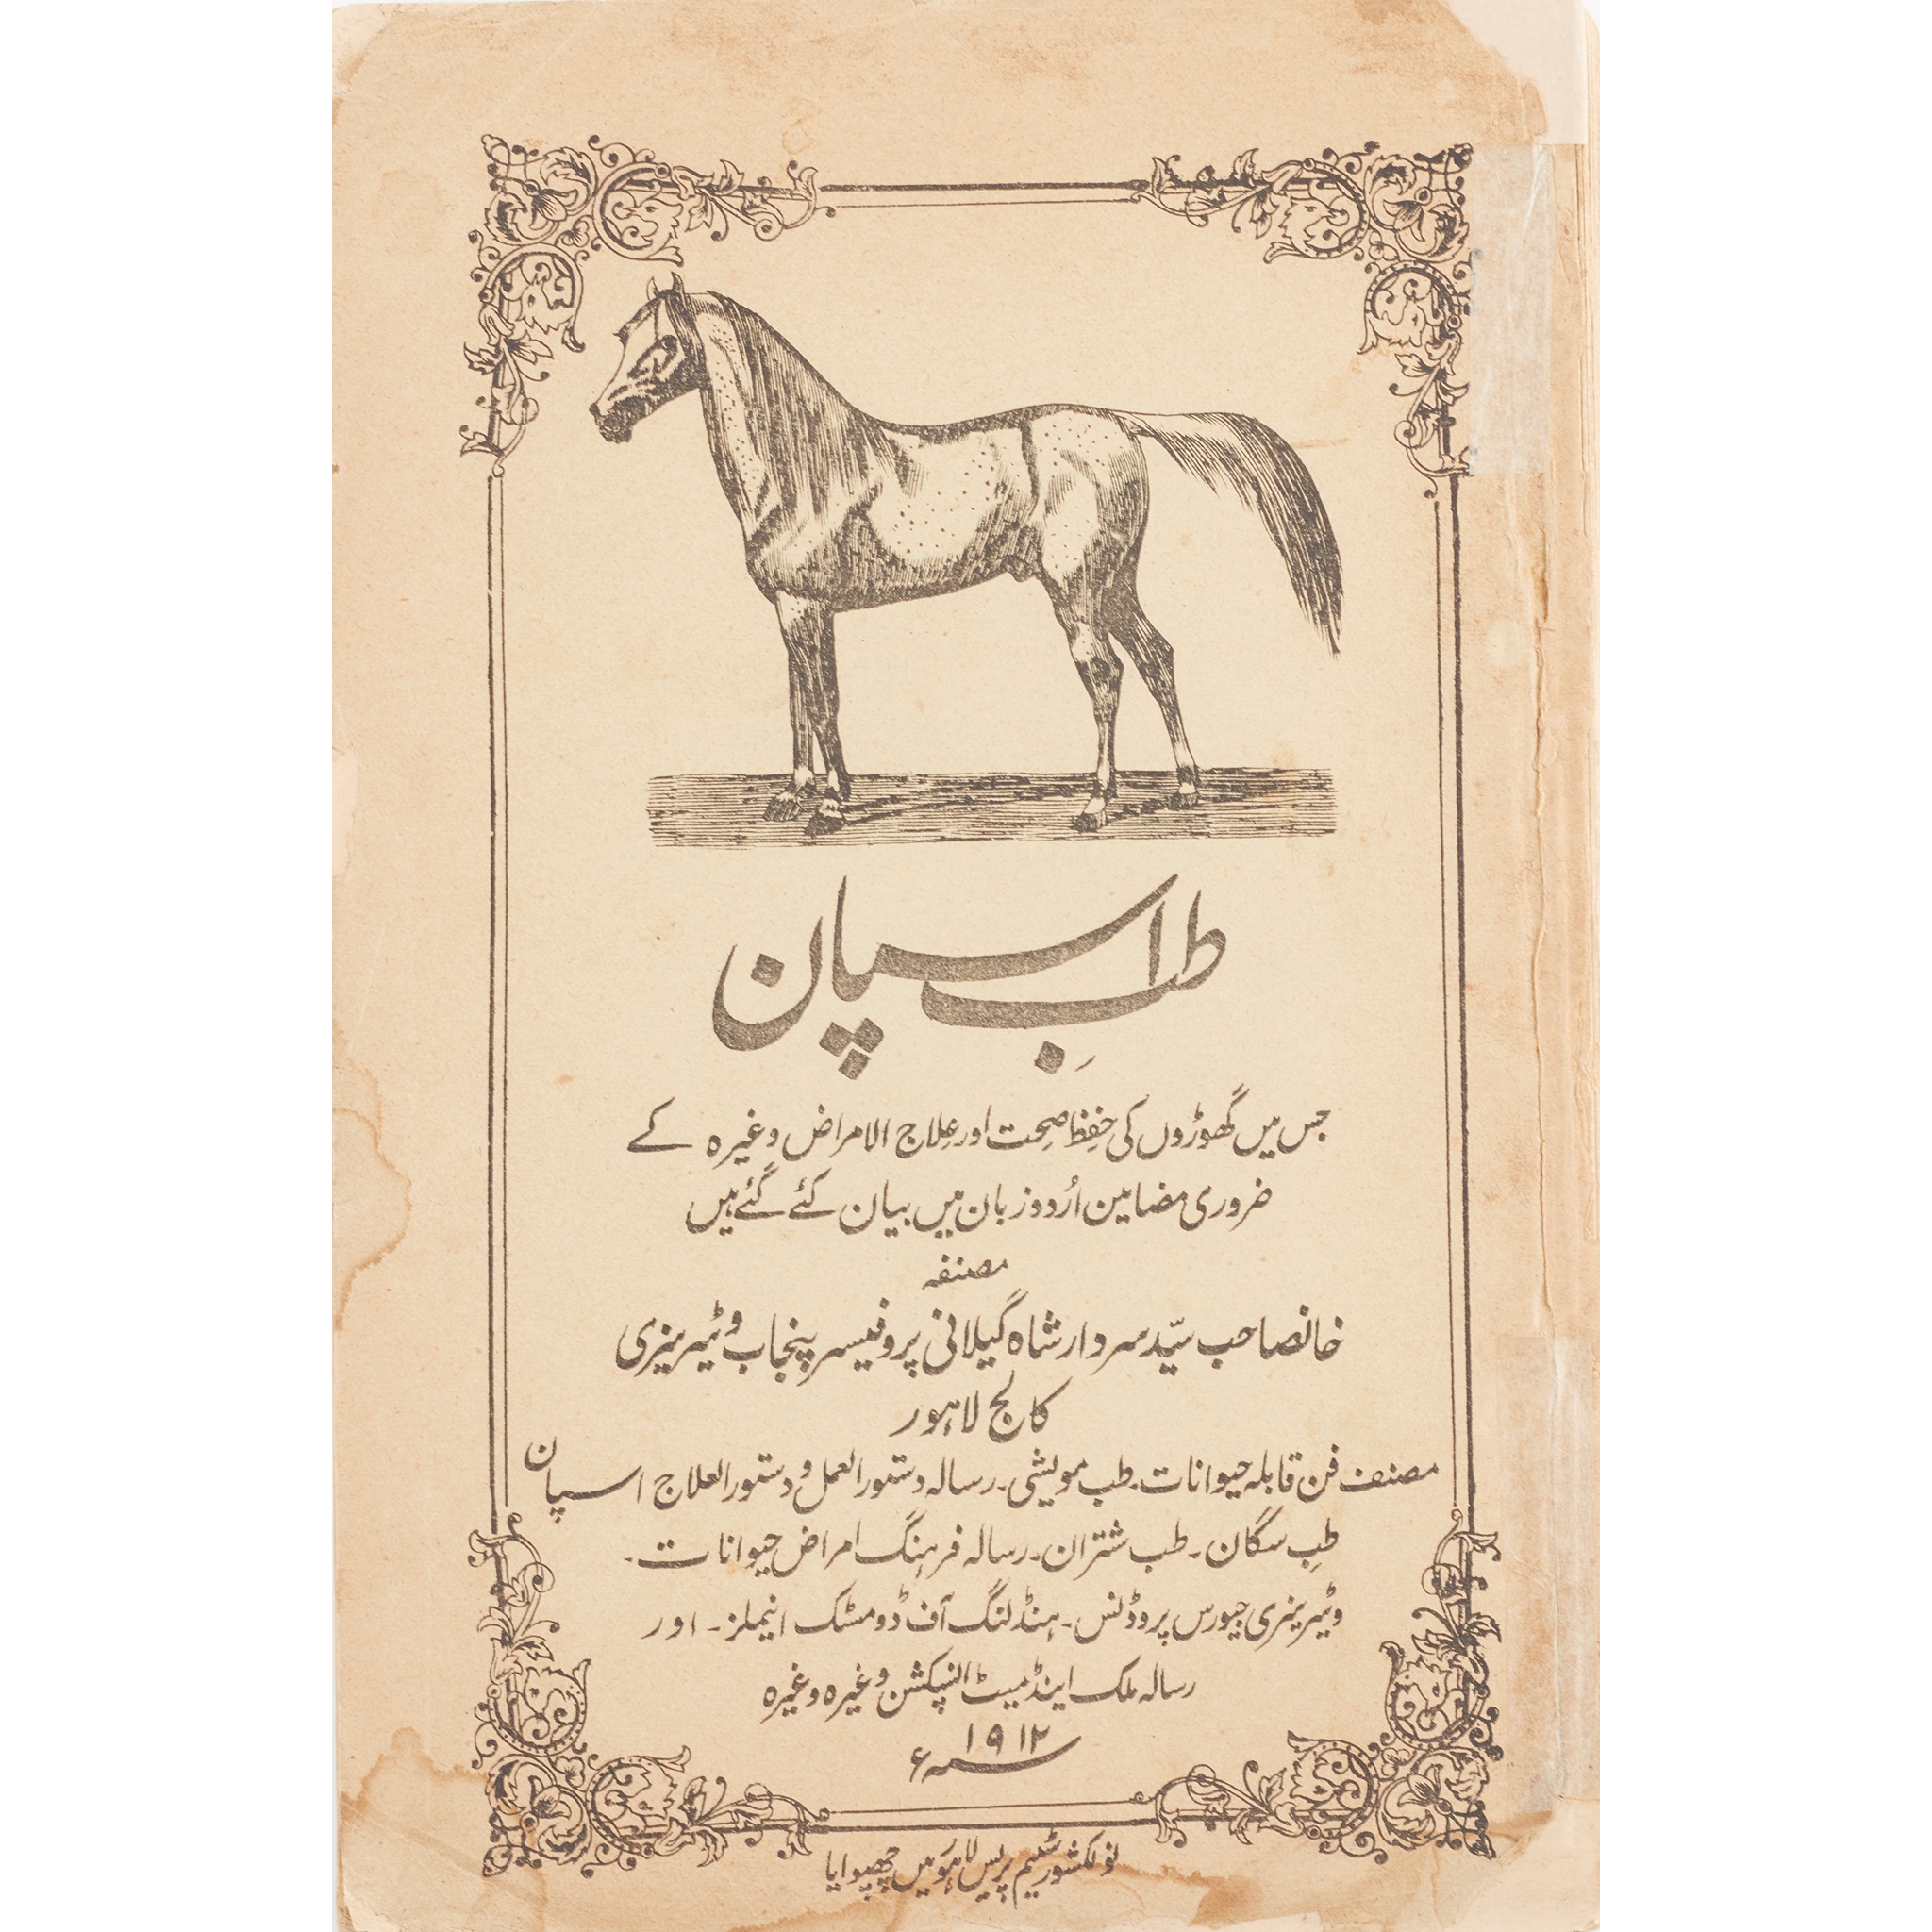 طبِ اسپان
جس میں گھوڑوں کی حفِظ صحِت اور عِلاج الامراض وغیرہ کے
ضروری مضامین اُردو زبان میں بیان کئے گئے ہیں
مصنفہ
خانصاحب سیّد سردار شاہ گیلانی پروفیسر پنجاب وٹیرینری
کالج لاہور
مصنف فن قابلہ حیوانات۔ طب مویشی۔ رسالہ دستور العمل و دستور العلاج اسپان
طبِ سگان۔ طب شتران۔ رسالہ فرہنگ امراض حیوانات۔
وٹیرینری جیورس پروڈنس۔ ہنڈلنگ آف ڈومسٹک انیملز۔ اور
رسالہ ملک اینڈ میٹ انسپکشن وغیرہ وغیرہ
سنہ ۱۹۱۲ء
نولکشور سٹیم پریس لاہور میں چھپوایا